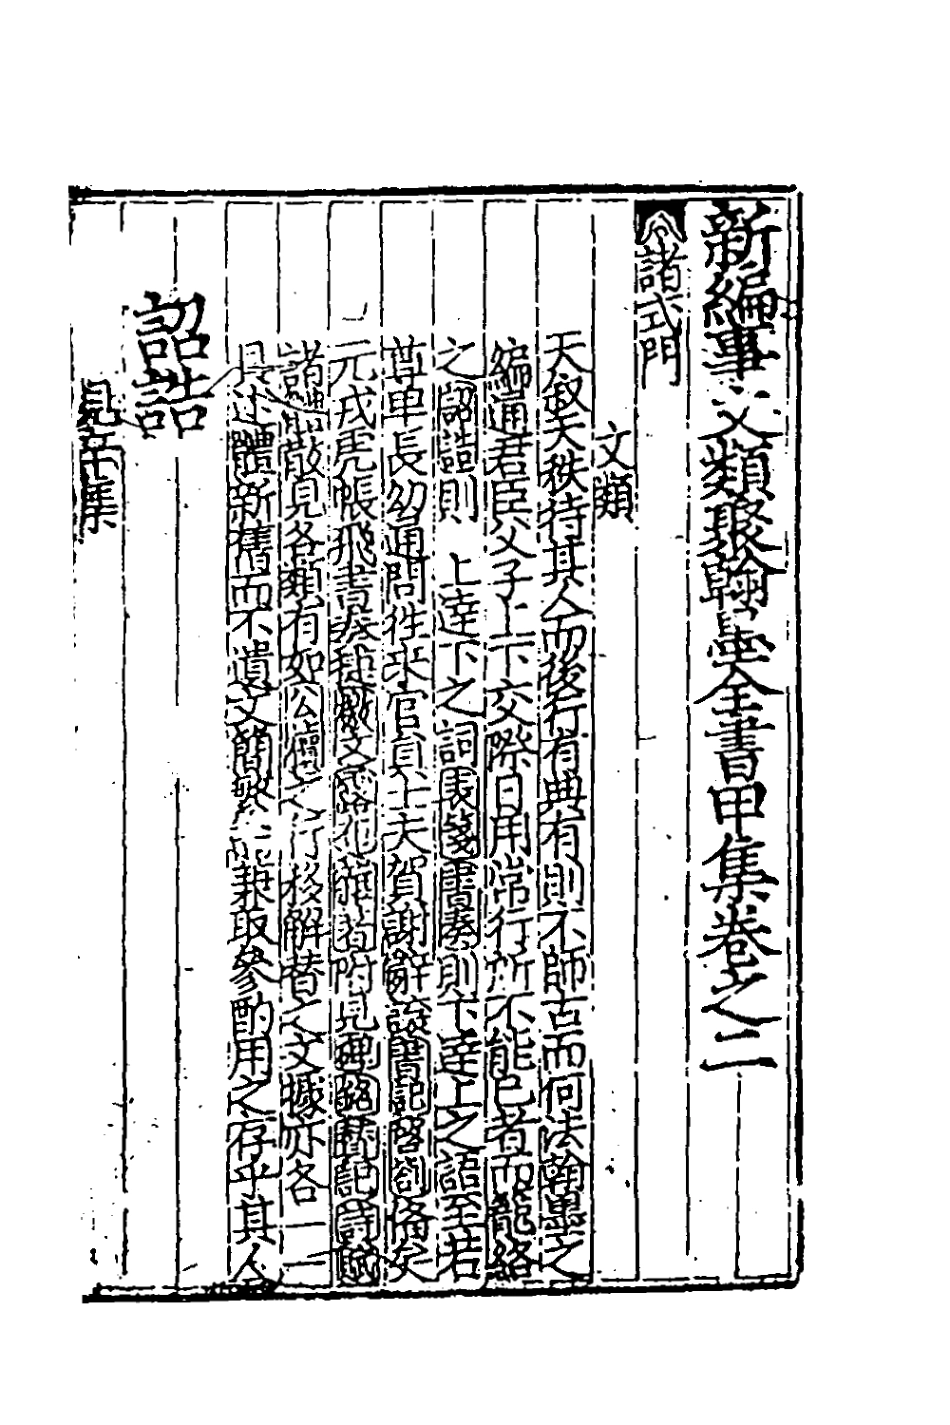 新編事文類聚翰墨全書甲集卷之二
諸式門
文類
天叙天秩待其人而後行有典有則不師古而何法翰墨之
編通君臣父子上下交際日用常行所不能已者而籠絡
之詔誥則上逹下之詞表箋書奏則下逹上之語至若
尊卑長幼通問往来官員士夫賀謝辭謏書記啓劄備矣
元戎虎帳飛書奏捷檄文露布雜著附見碑銘賛記詩賦
諸體散見各類有如公牘之行移解替之文據亦各一一
具述體新舊而不遺文簡繁兼取參酌用之存乎其人
詔誥
見辛集